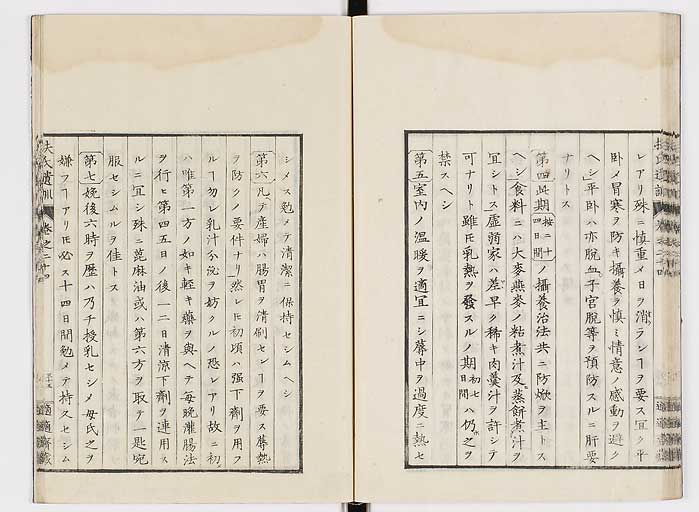 レアリ殊ニ慎重メ日ヲ消ランヿヲ要ス宜ク平
臥メ冒寒ヲ防キ攝養ヲ慎ミ情意ノ感動ヲ避ク
ヘシ平臥ハ亦脱血子宮脱等ヲ預防スルニ肝要
ナリトス
第四此期 按ニ十四日間 ノ攝養治法共ニ防焮ヲ主トス
ヘシ食料ニハ大麥燕麥ノ粘煮汁及蒸餅煮汁ヲ
宜シトス虚弱家ハ差早ク稀キ肉羹汁ヲ許シテ
可ナリト雖𪜈乳熱ヲ發スルノ期 初七日間 ハ仍之ヲ
禁スヘシ
第五室内ノ温暖ヲ適宜ニシ蓐中ヲ過度ニ熱セ
シメス勉メテ清潔ニ保持セシムヘシ
第六凡テ産婦ハ腸胃ヲ清刷セシヿヲ要ス蓐熱
ヲ防クノ要件ナリ然レ𪜈初頃ハ强下齊ヲ用フ
ルヿ勿レ乳汁分泌ヲ妨クルノ恐レアリ故ニ初
ハ唯第一方ノ如キ軽キ藥ヲ與ヘテ毎晩灌腸法
ヲ行ヒ第四五日ノ後一二日清涼下劑ヲ連用ス
ルニ宜シ殊ニ蓖麻油或ハ第六方ヲ取テ一匙宛
服セシムルヲ佳トス
第七娩後六時ヲ歴ハ乃チ授乳セシメ母氏之ヲ
嫌フヿアリ𪜈必ス十四日間勉メテ持スセシム
扶氏遺訓 卷之二十四
適適齋藏